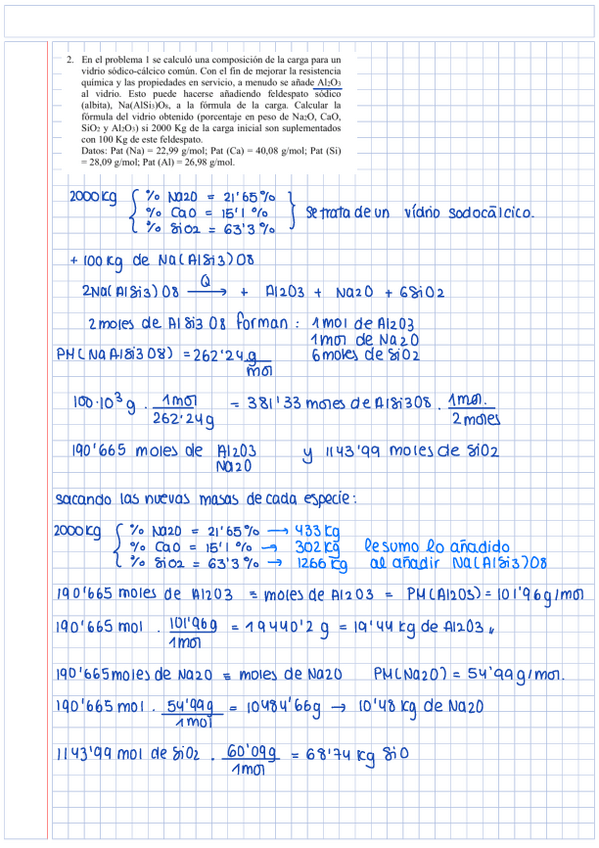 2. En el problema 1 se calculó una composición de la carga para un
vidrio sódico-cálcico común. Con el fin de mejorar la resistencia
química y las propiedades en servicio, a menudo se añade Al₂O₃
al vidrio. Esto puede hacerse añadiendo feldespato sódico
(albita), Na(AlSi₃)O₈, a la fórmula de la carga. Calcular la
fórmula del vidrio obtenido (porcentaje en peso de Na₂O, CaO,
SiO₂ y Al₂O₃) si 2000 Kg de la carga inicial son suplementados
con 100 Kg de este feldespato.
Datos: Pat (Na) = 22,99 g/mol; Pat (Ca) = 40,08 g/mol; Pat (Si)
= 28,09 g/mol; Pat (Al) = 26,98 g/mol.
2000Kg { % Na2O = 21'65%
% CaO = 15'1 % } Se trata de un vídrio sodocálcico.
% SiO2 = 63'3 %
+ 100 Kg de Na(AlSi3)O8
2Na(AlSi3)O8 —Q→ + Al2O3 + Na2O + 6SiO2
2 moles de AlSi3O8 forman : 1 mol de Al2O3
1 mol de Na2O
PM(NaAlSi3O8) = 262'24 g/mol 6 moles de SiO2
100·10³ g · 1mol/262'24g = 381'33 moles de AlSi3O8 · 1mol./2 moles
190'665 moles de Al2O3 y 1143'99 moles de SiO2
Na2O
sacando las nuevas masas de cada especie:
2000Kg { % Na2O = 21'65% → 433 Kg
% CaO = 15'1 % → 302 Kg le sumo lo añadido
% SiO2 = 63'3 % → 1266 Kg al añadir Na(AlSi3)O8
190'665 moles de Al2O3 = moles de Al2O3 = PM(Al2O3) = 101'96 g/mol
190'665 mol · 101'96g/1mol = 19440'2 g = 19'44 Kg de Al2O3
190'665 moles de Na2O = moles de Na2O PM(Na2O) = 54'99 g/mol.
190'665 mol · 54'99g/1mol = 10484'66g → 10'48 Kg de Na2O
1143'99 mol de SiO2 · 60'09g/1mol = 68'74 Kg SiO